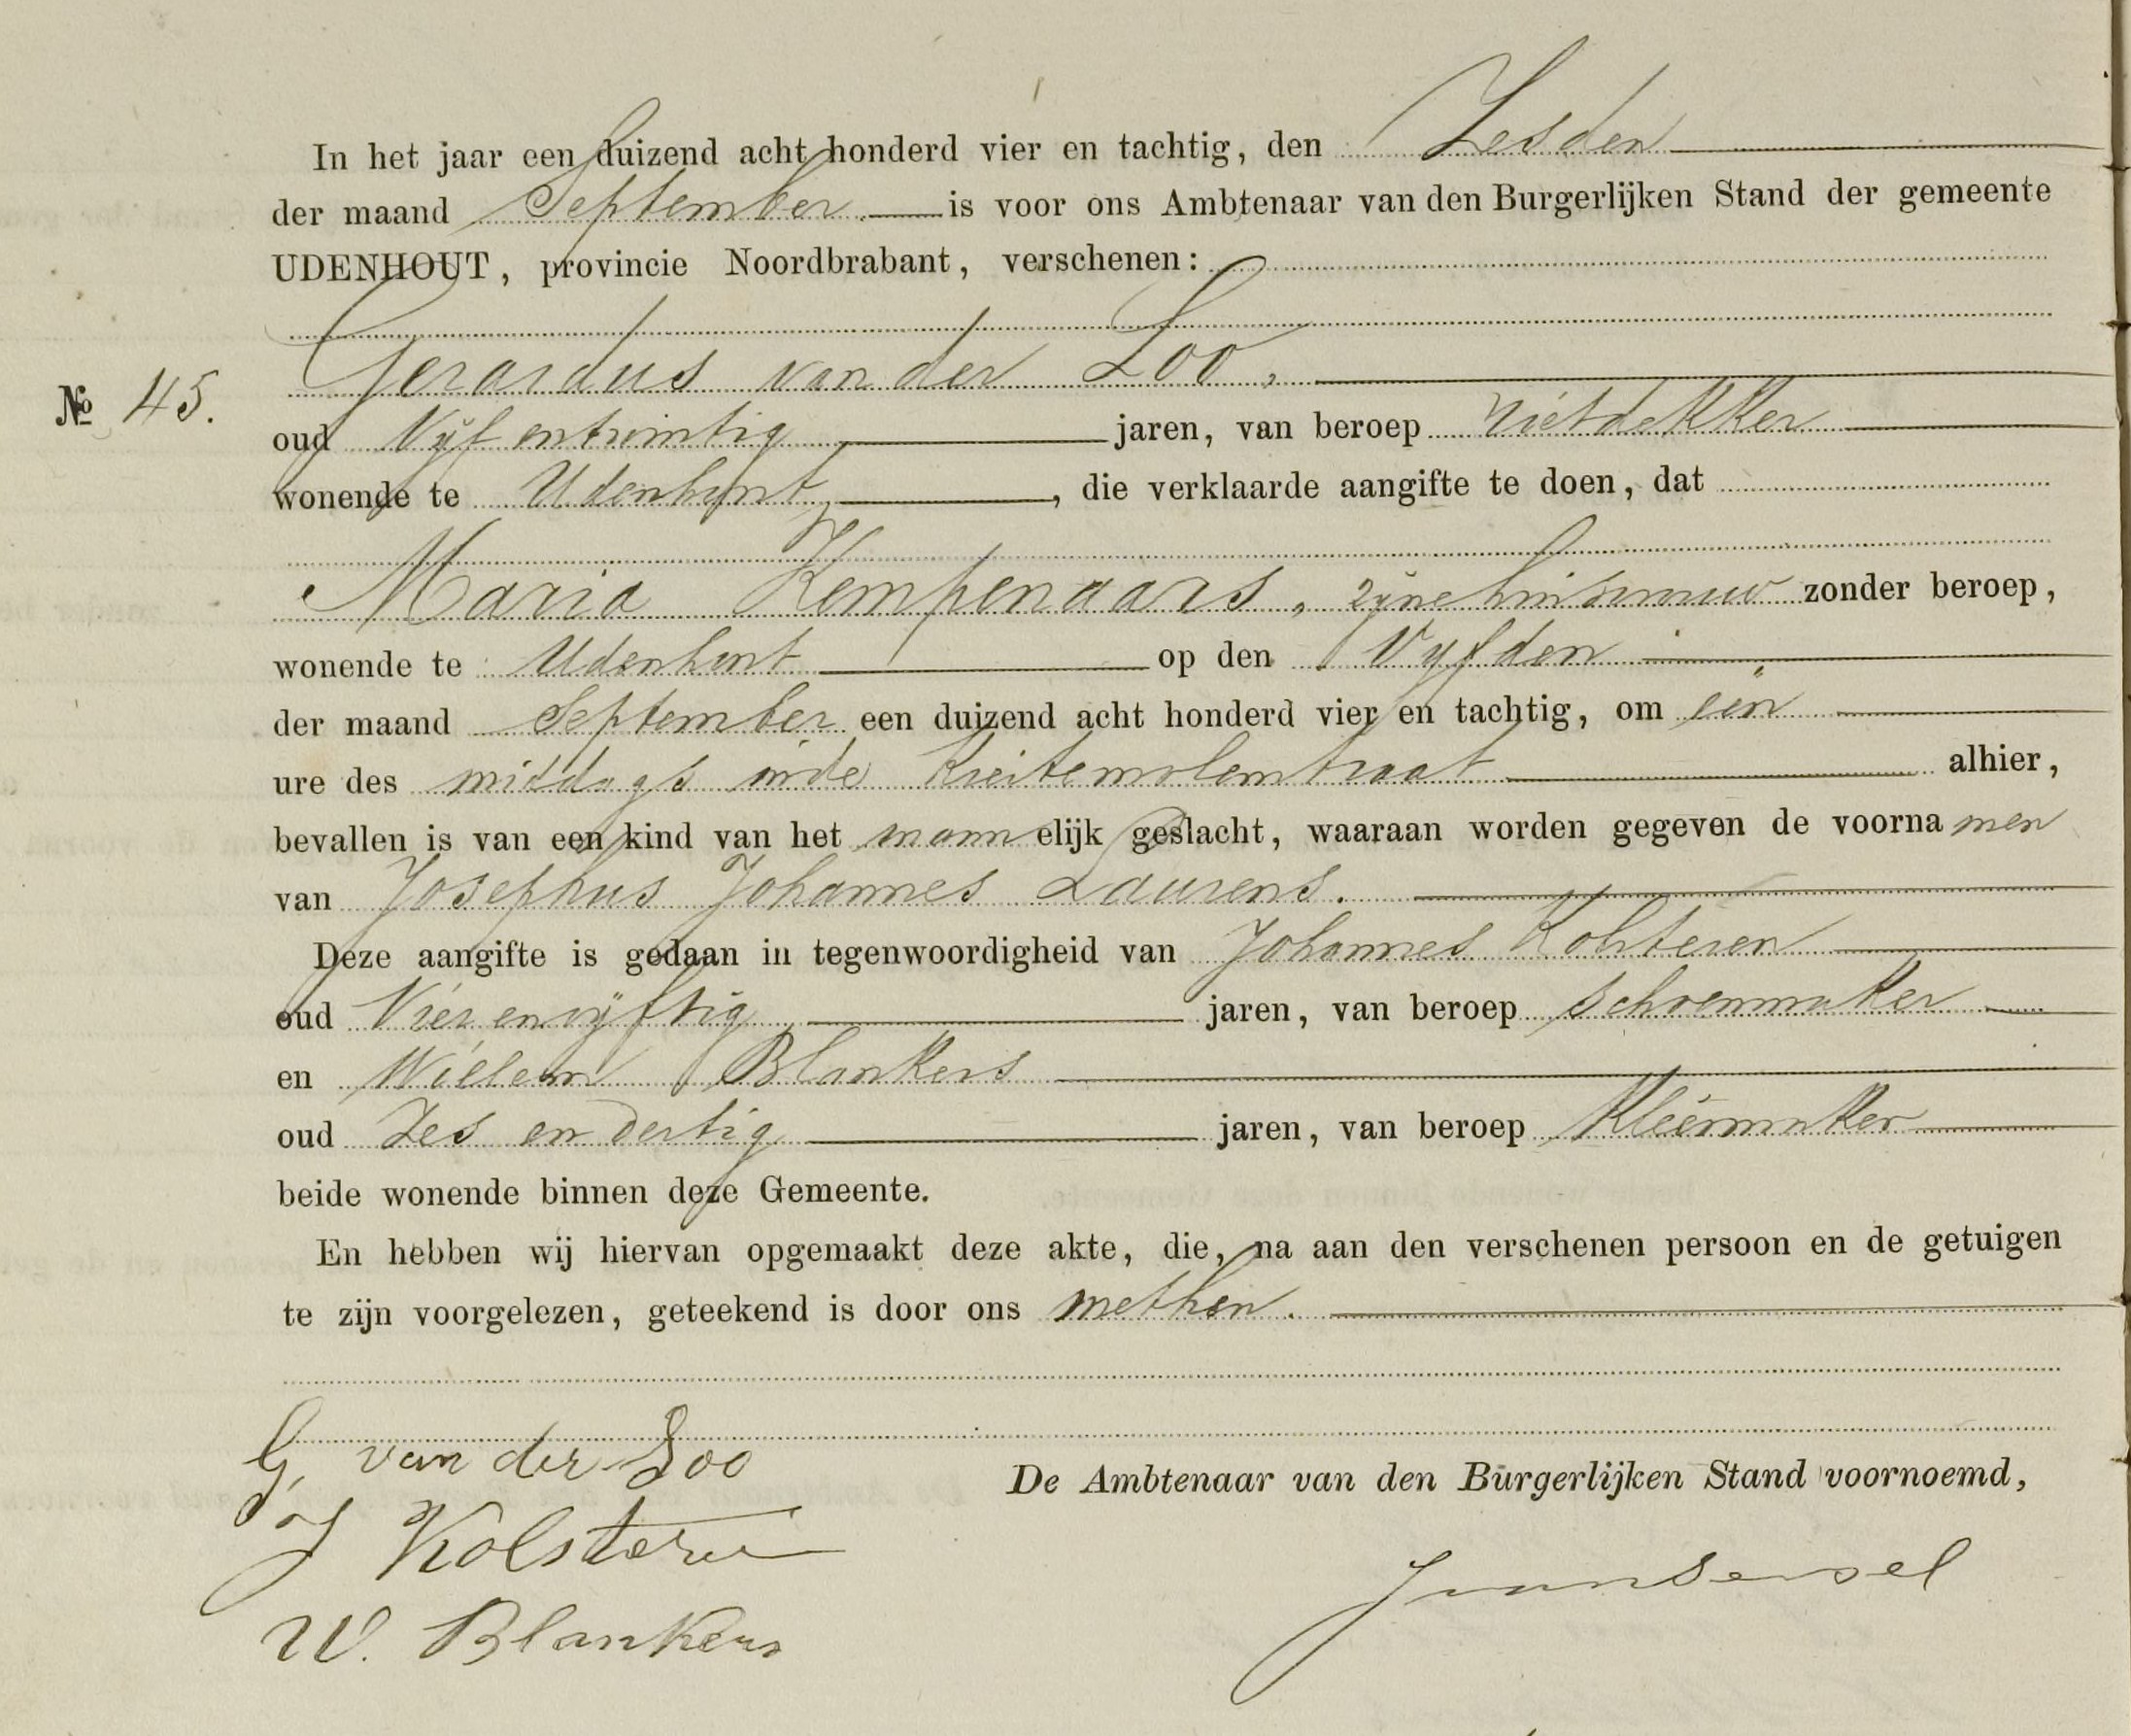 In het jaar een duizend acht honderd vier en tachtig, den Zesden
der maand September is voor ons Ambtenaar van den Burgerlijken Stand der gemeente
UDENHOUT, provincie Noordbrabant, verschenen:
Gerardus van der Loo,
No 45.
oud Vijf entwintig jaren, van beroep rietdekker
wonende te Udenhout, die verklaarde aangifte te doen, dat
Maria Kempenaars, zijne huisvrouw zonder beroep,
wonende te Udenhout op den Vyfden
der maand September een duizend acht honderd vier en tachtig, om een
ure des middags in de Kreitemolenstraat alhier,
bevallen is van een kind van het mannelijk geslacht, waaraan worden gegeven de voornamen
van Josephus Johannes Laurens.
Deze aangifte is gedaan in tegenwoordigheid van Johannes Kolsteren
oud Vier envijftig jaren, van beroep schoenmaker
en Willem Blankers
oud Zes en dertig jaren, van beroep Kleermaker
beide wonende binnen deze Gemeente.
En hebben wij hiervan opgemaakt deze akte, die, na aan den verschenen persoon en de getuigen
te zijn voorgelezen, geteekend is door ons methen.
G. van der Loo
De Ambtenaar van den Burgerlijken Stand voornoemd,
J Kolsteren
W. Blankers